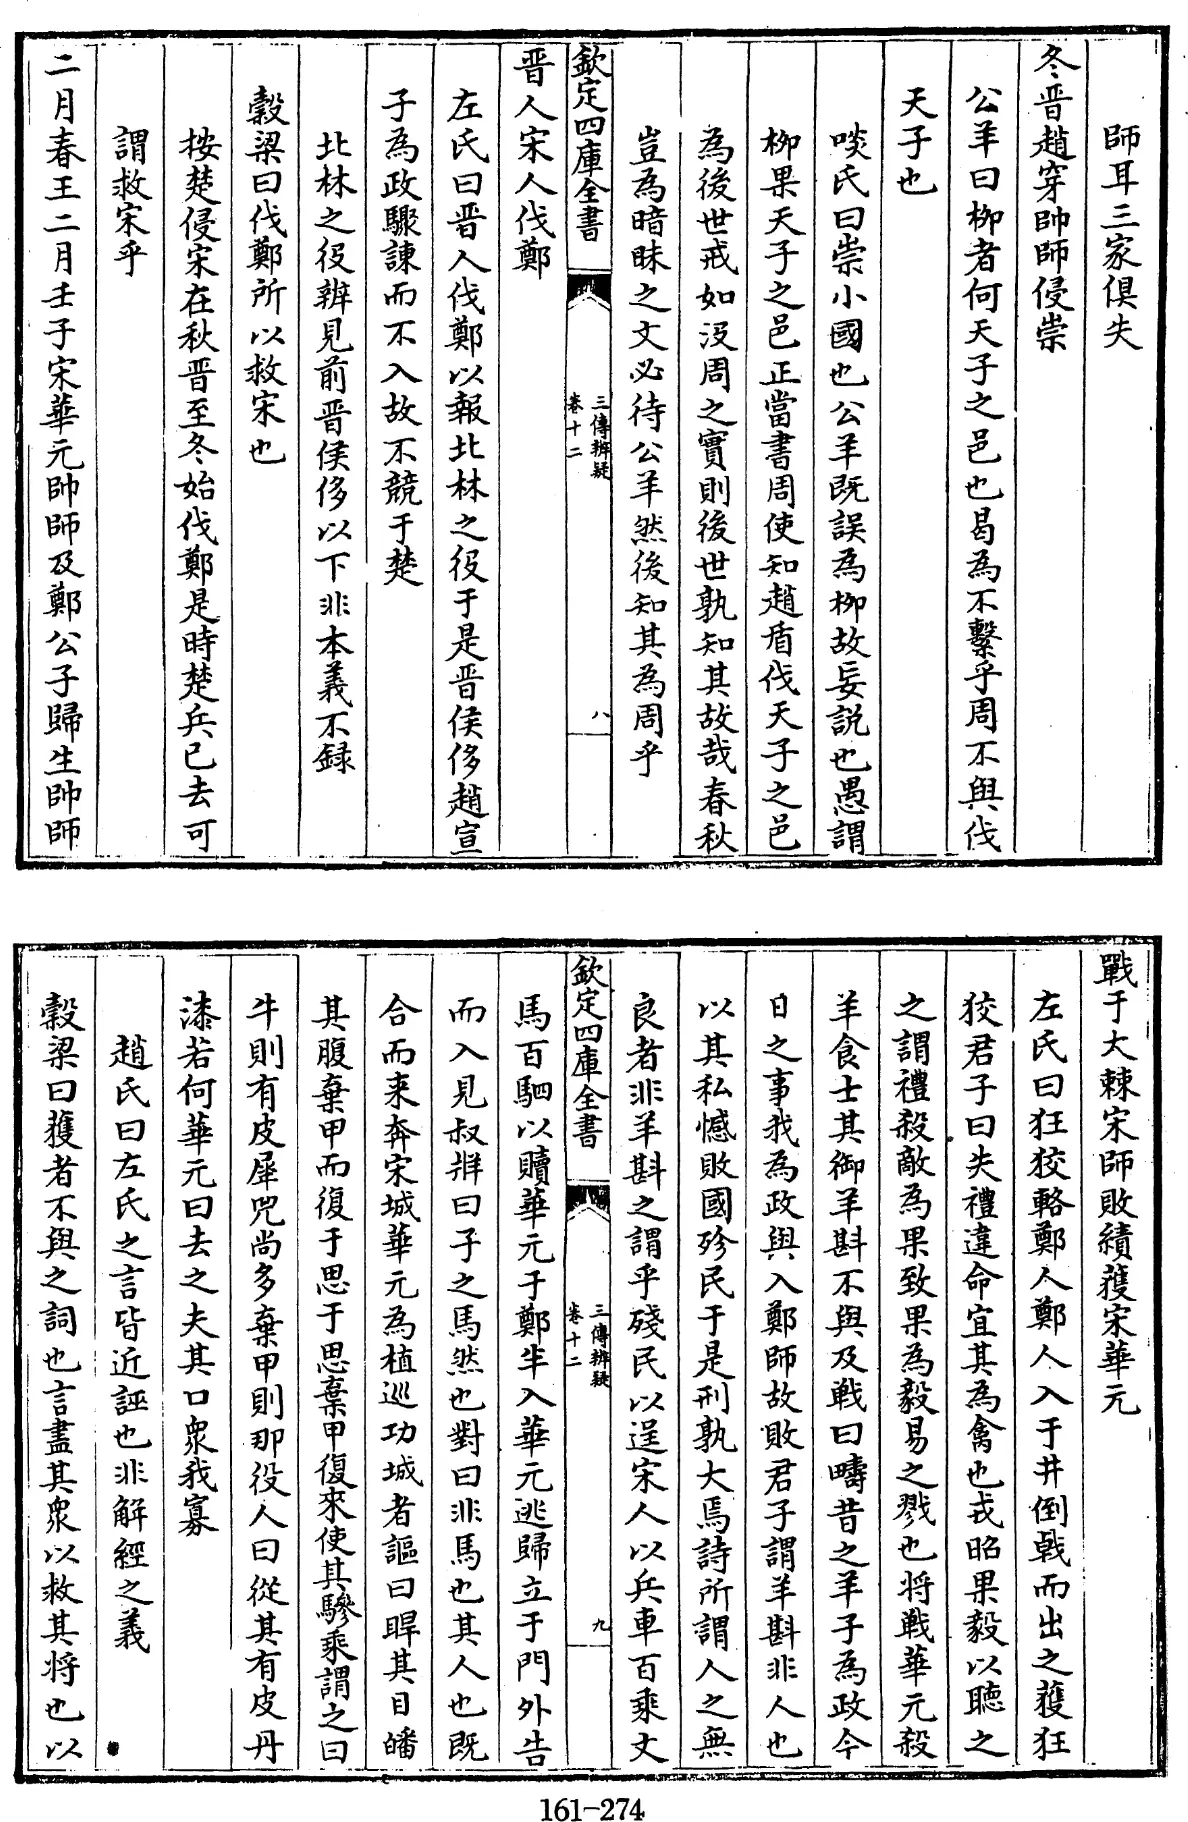 師耳三家俱失
冬晋趙穿帥師侵崇
公羊曰柳者何天子之邑也曷為不繫乎周不與伐
天子也
啖氏曰崇小國也公羊既誤為柳故妄説也愚謂
柳果天子之邑正當書周使知趙盾伐天子之邑
為後世戒如沒周之實則後世孰知其故哉春秋
豈為暗昧之文必待公羊然後知其為周乎
欽定四庫全書
三傳辨疑
卷十二
八
晋人宋人伐鄭
左氏曰晋人伐鄭以報北林之役于是晋侯侈趙宣
子為政驟諫而不入故不競于楚
北林之役辨見前晋侯侈以下非本義不録
穀梁曰伐鄭所以救宋也
按楚侵宋在秋晋至冬始伐鄭是時楚兵已去可
謂救宋乎
二月春王二月壬子宋華元帥師及鄭公子歸生帥師
戰于大棘宋師敗績獲宋華元
左氏曰狂狡輅鄭人鄭人入于井倒戟而出之獲狂
狡君子曰失禮違命宜其為禽也戎昭果毅以聽之
之謂禮殺敵為果致果為毅易之戮也将戰華元殺
羊食士其御羊斟不與及戰曰疇昔之羊子為政今
日之事我為政與入鄭師故敗君子謂羊斟非人也
以其私憾敗國殄民于是刑孰大焉詩所謂人之無
良者非羊斟之謂乎殘民以逞宋人以兵車百乘文
欽定四庫全書
三傳辨疑
卷十二
九
馬百駟以贖華元于鄭半入華元逃歸立于門外告
而入見叔牂曰子之馬然也對曰非馬也其人也既
合而来奔宋城華元為植巡功城者謳曰睅其目皤
其腹棄甲而復于思于思棄甲復來使其驂乘謂之曰
牛則有皮犀兕尚多棄甲則那役人曰從其有皮丹
漆若何華元曰去之夫其口衆我寡
趙氏曰左氏之言皆近誣也非解經之義
穀梁曰獲者不與之詞也言盡其衆以救其将也以
161-274